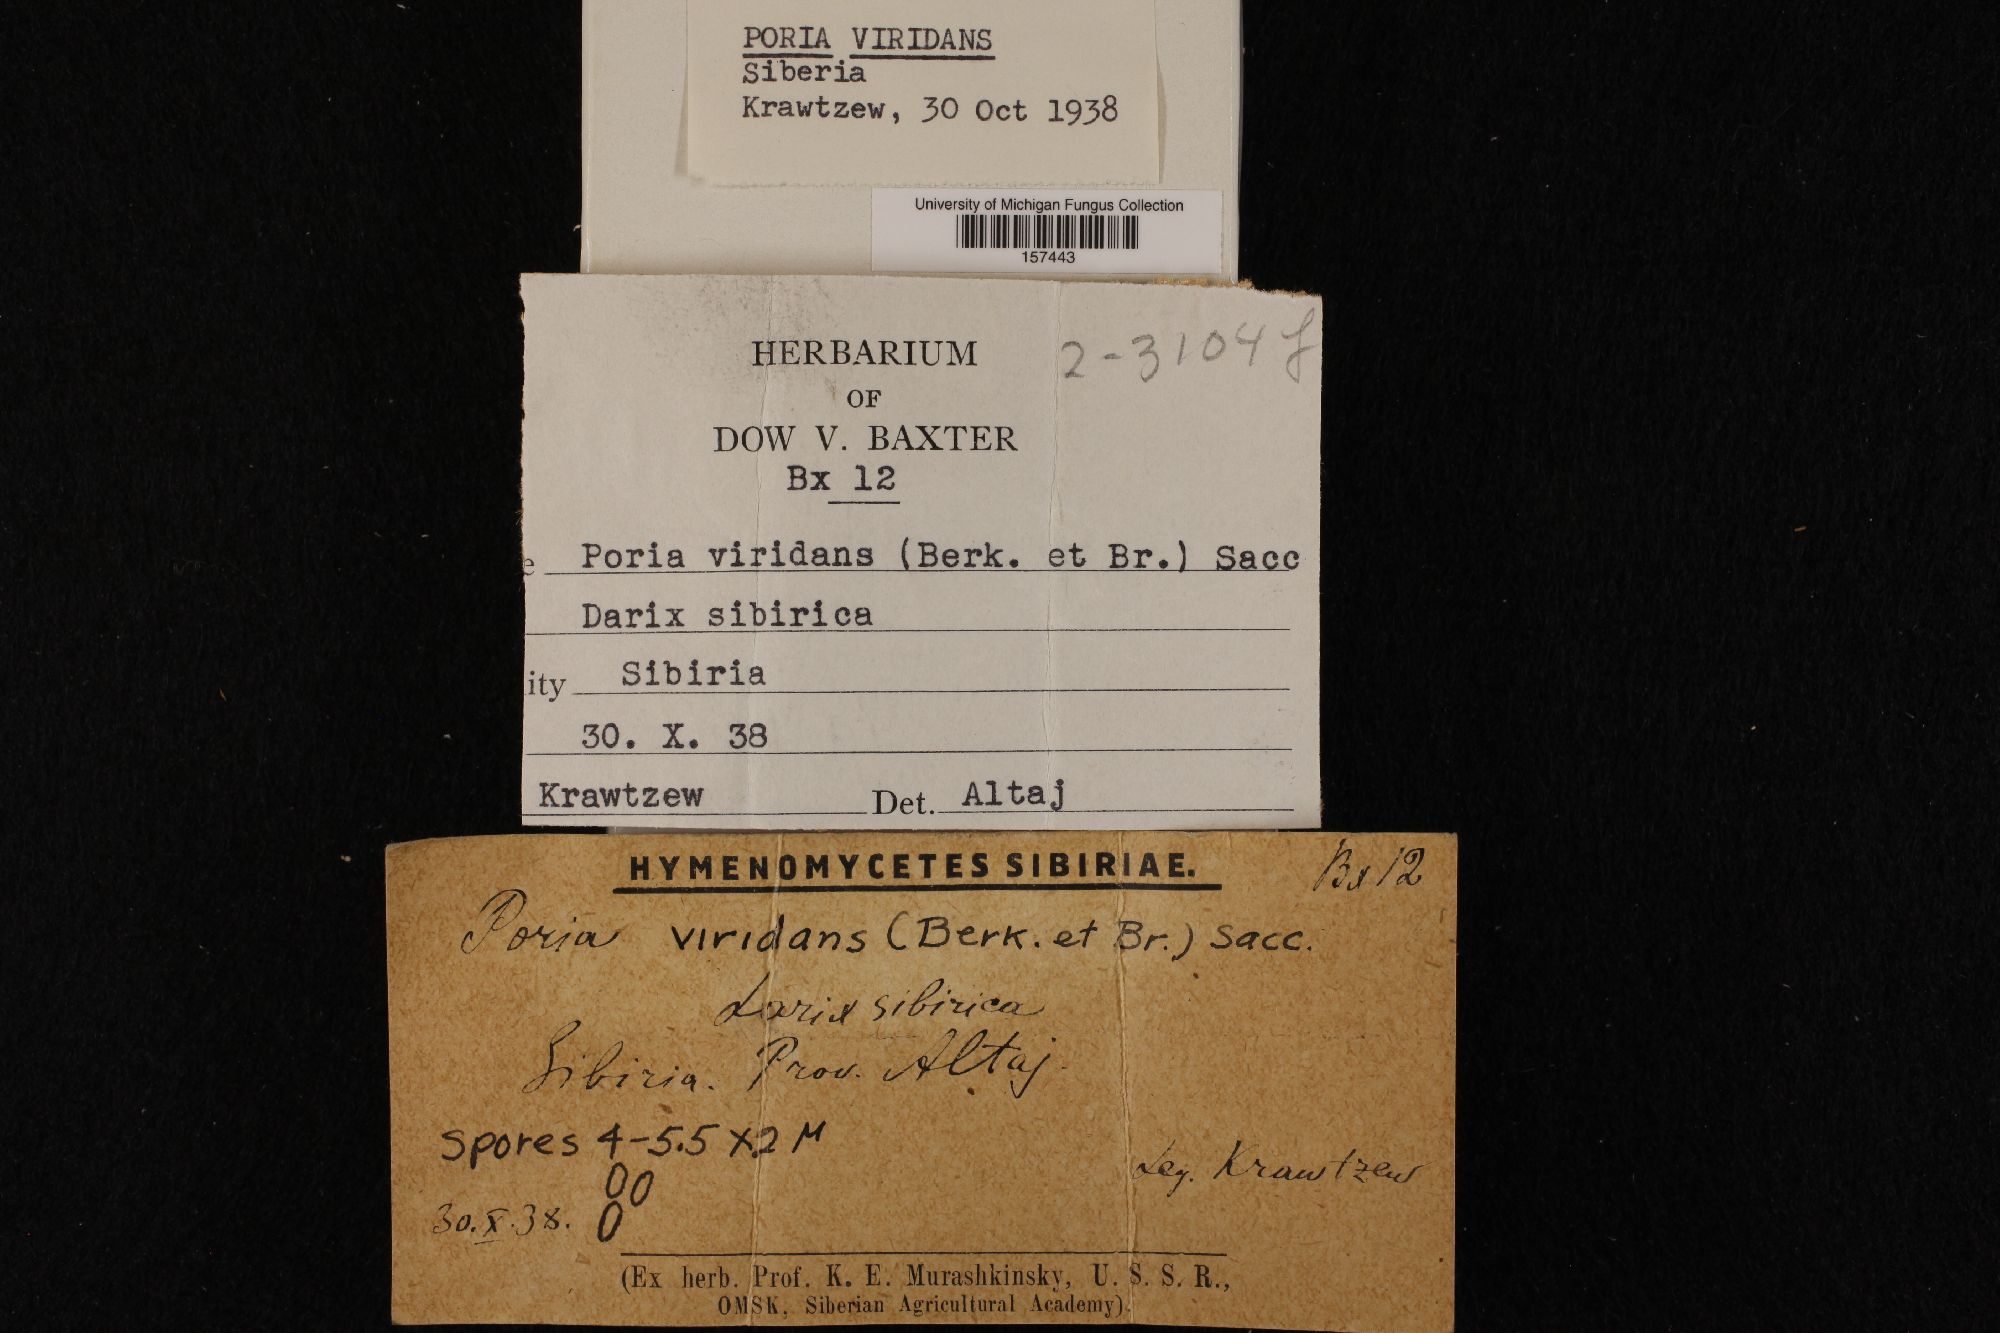 PORIA VIRIDANS
Siberia
Krawtzew, 30 Oct 1938
University of Michigan Fungus Collection
157443
HERBARIUM
2-3104 f
OF
DOW V. BAXTER
Bx 12
e Poria viridans (Berk. et Br.) Sacc
Darix sibirica
ity Sibiria
30. X. 38
Krawtzew Det. Altaj
HYMENOMYCETES SIBIRIAE.
Bx 12
Poria viridans (Berk. et Br.) Sacc.
Larix sibirica
Sibiria. Prov. Altaj.
Spores 4-5.5 x 2 M
Leg. Krawtzew
30.X.38.
(Ex herb. Prof. K. E. Murashkinsky, U. S. S. R.,
OMSK, Siberian Agricultural Academy).